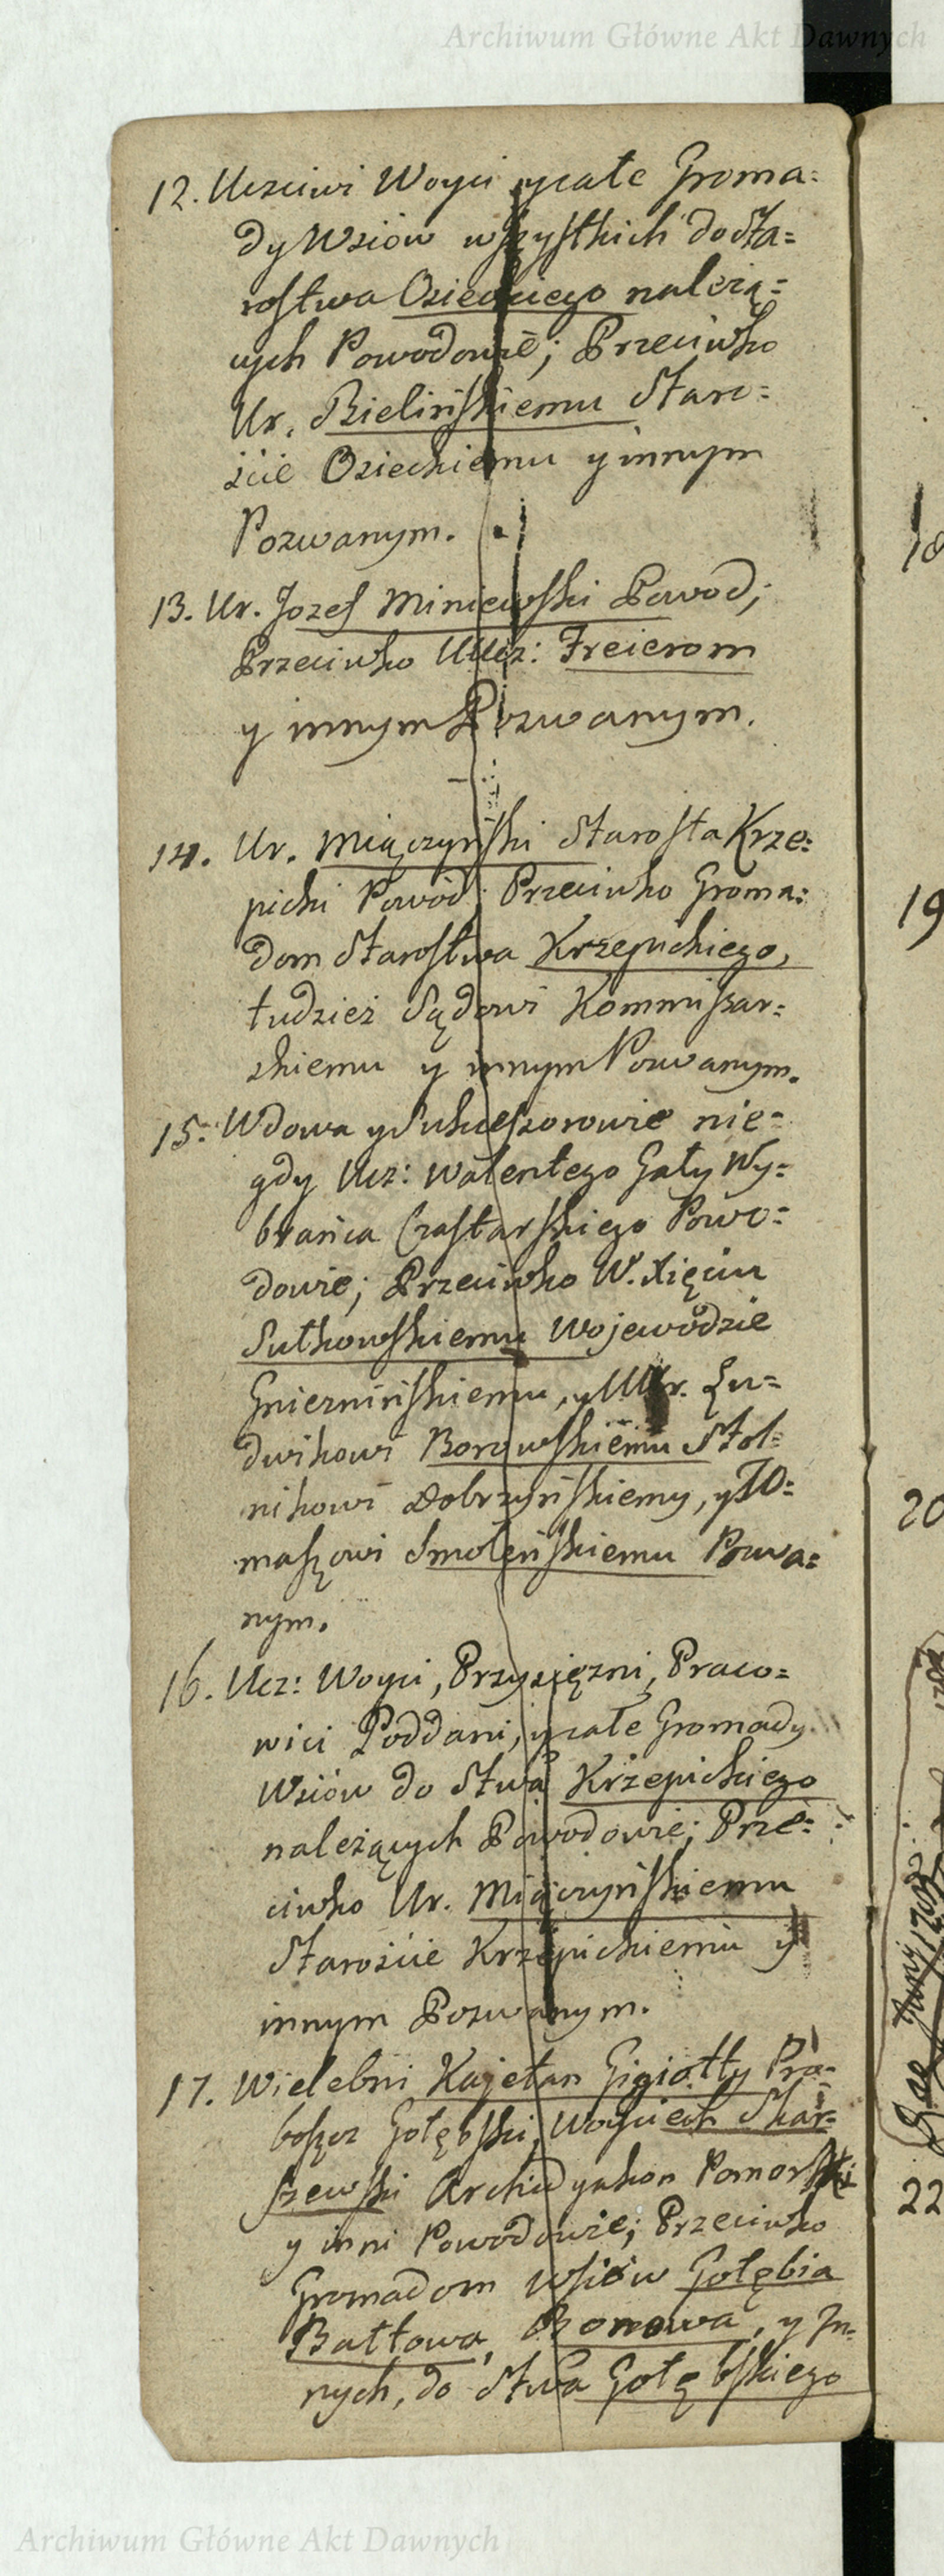 Archiwum Główne Akt Dawnych
12. Uczciwi Woyci ycałe Groma=
dy Wsiów wszystkich do Sta=
rostwa Osieckiego należą=
cych Powodowie; Przeciwko
Ur. Bielińskiemu Staro=
ście Osieckiemu y innym
Pozwanym.
13. Ur. Jozef Miniewski Powod;
Przeciwko UUcz: Freierom
y innym Pozwanym.
14. Ur. Miączyński Starosta Krze=
picki Powód; Przeciwko Groma=
dom Starostwa Krzepickiego,
tudzież Sądowi Kommissar=
skiemu y innym Pozwanym.
15. Wdowa y Sukcessorowie nie=
gdy Ucz: Walentego Gały Wy=
brańca Czastarskiego Powo=
dowie; Przeciwko W. Xięciu
Sułkowskiemu Wojewodzie
Gnieznińskiemu, y UUr. Lu=
dwikowi Borowskiemu Stol=
nikowi Dobrzyńskiemy, y To=
maszowi Smoleńskiemu Pozwa=
nym.
16. Ucz: Woyci, Przysiężni, Praco=
wici Poddani, ycałe Gromady
Wsiów do Stwa Krzepickiego
należących Powodowie; Prze=
ciwko Ur. Miączyńskiemu
Staroście Krzepickiemu y
innym Pozwanym.
17. Wielebni Kajetan Gigiotty Pro=
boszcz Gołębski, Woyciech Skar=
szewski Archidyakon Pomorski
y inni Powodowie; Przeciwko
Gromadom Wsiów Gołębia
Bałtowa, Bonowa, y In=
nych, do Stwa Gołębskiego
18
19
20
22
Archiwum Główne Akt Dawnych